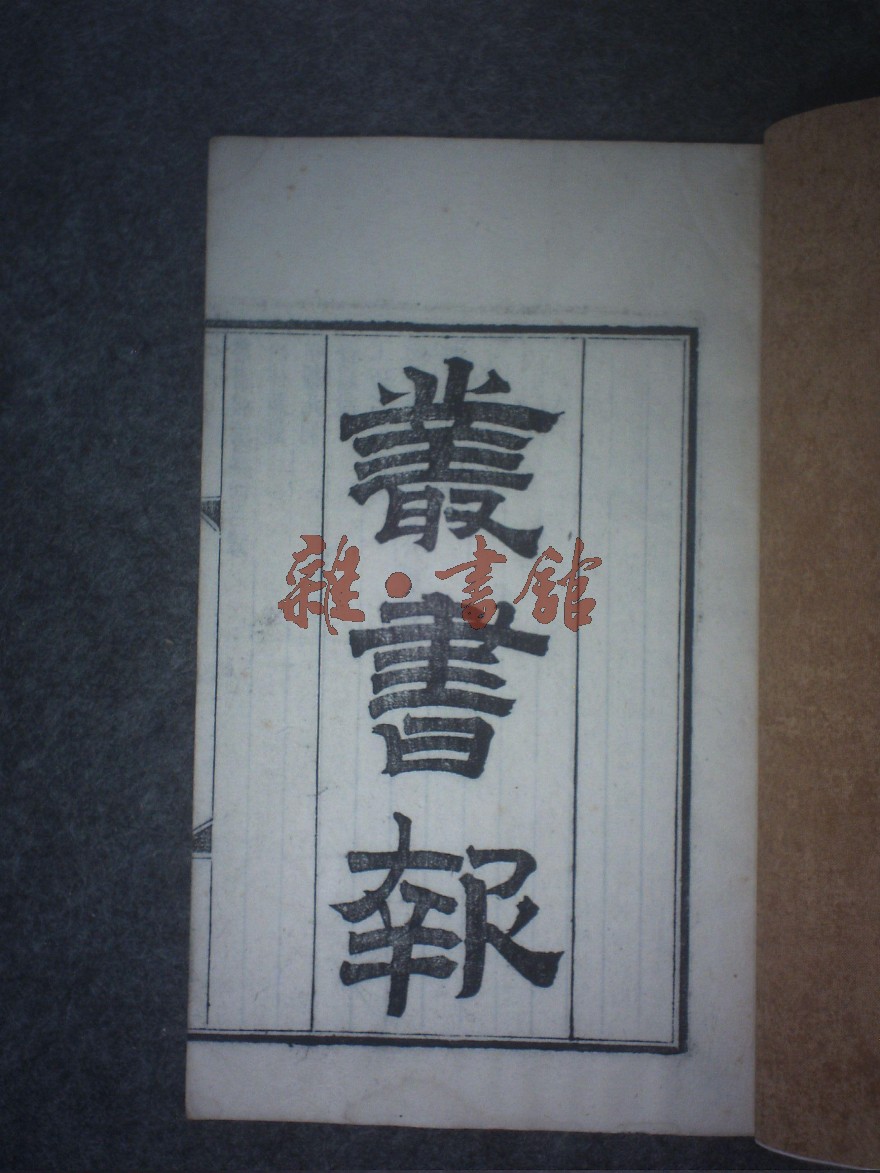 叢書報
雜·書館